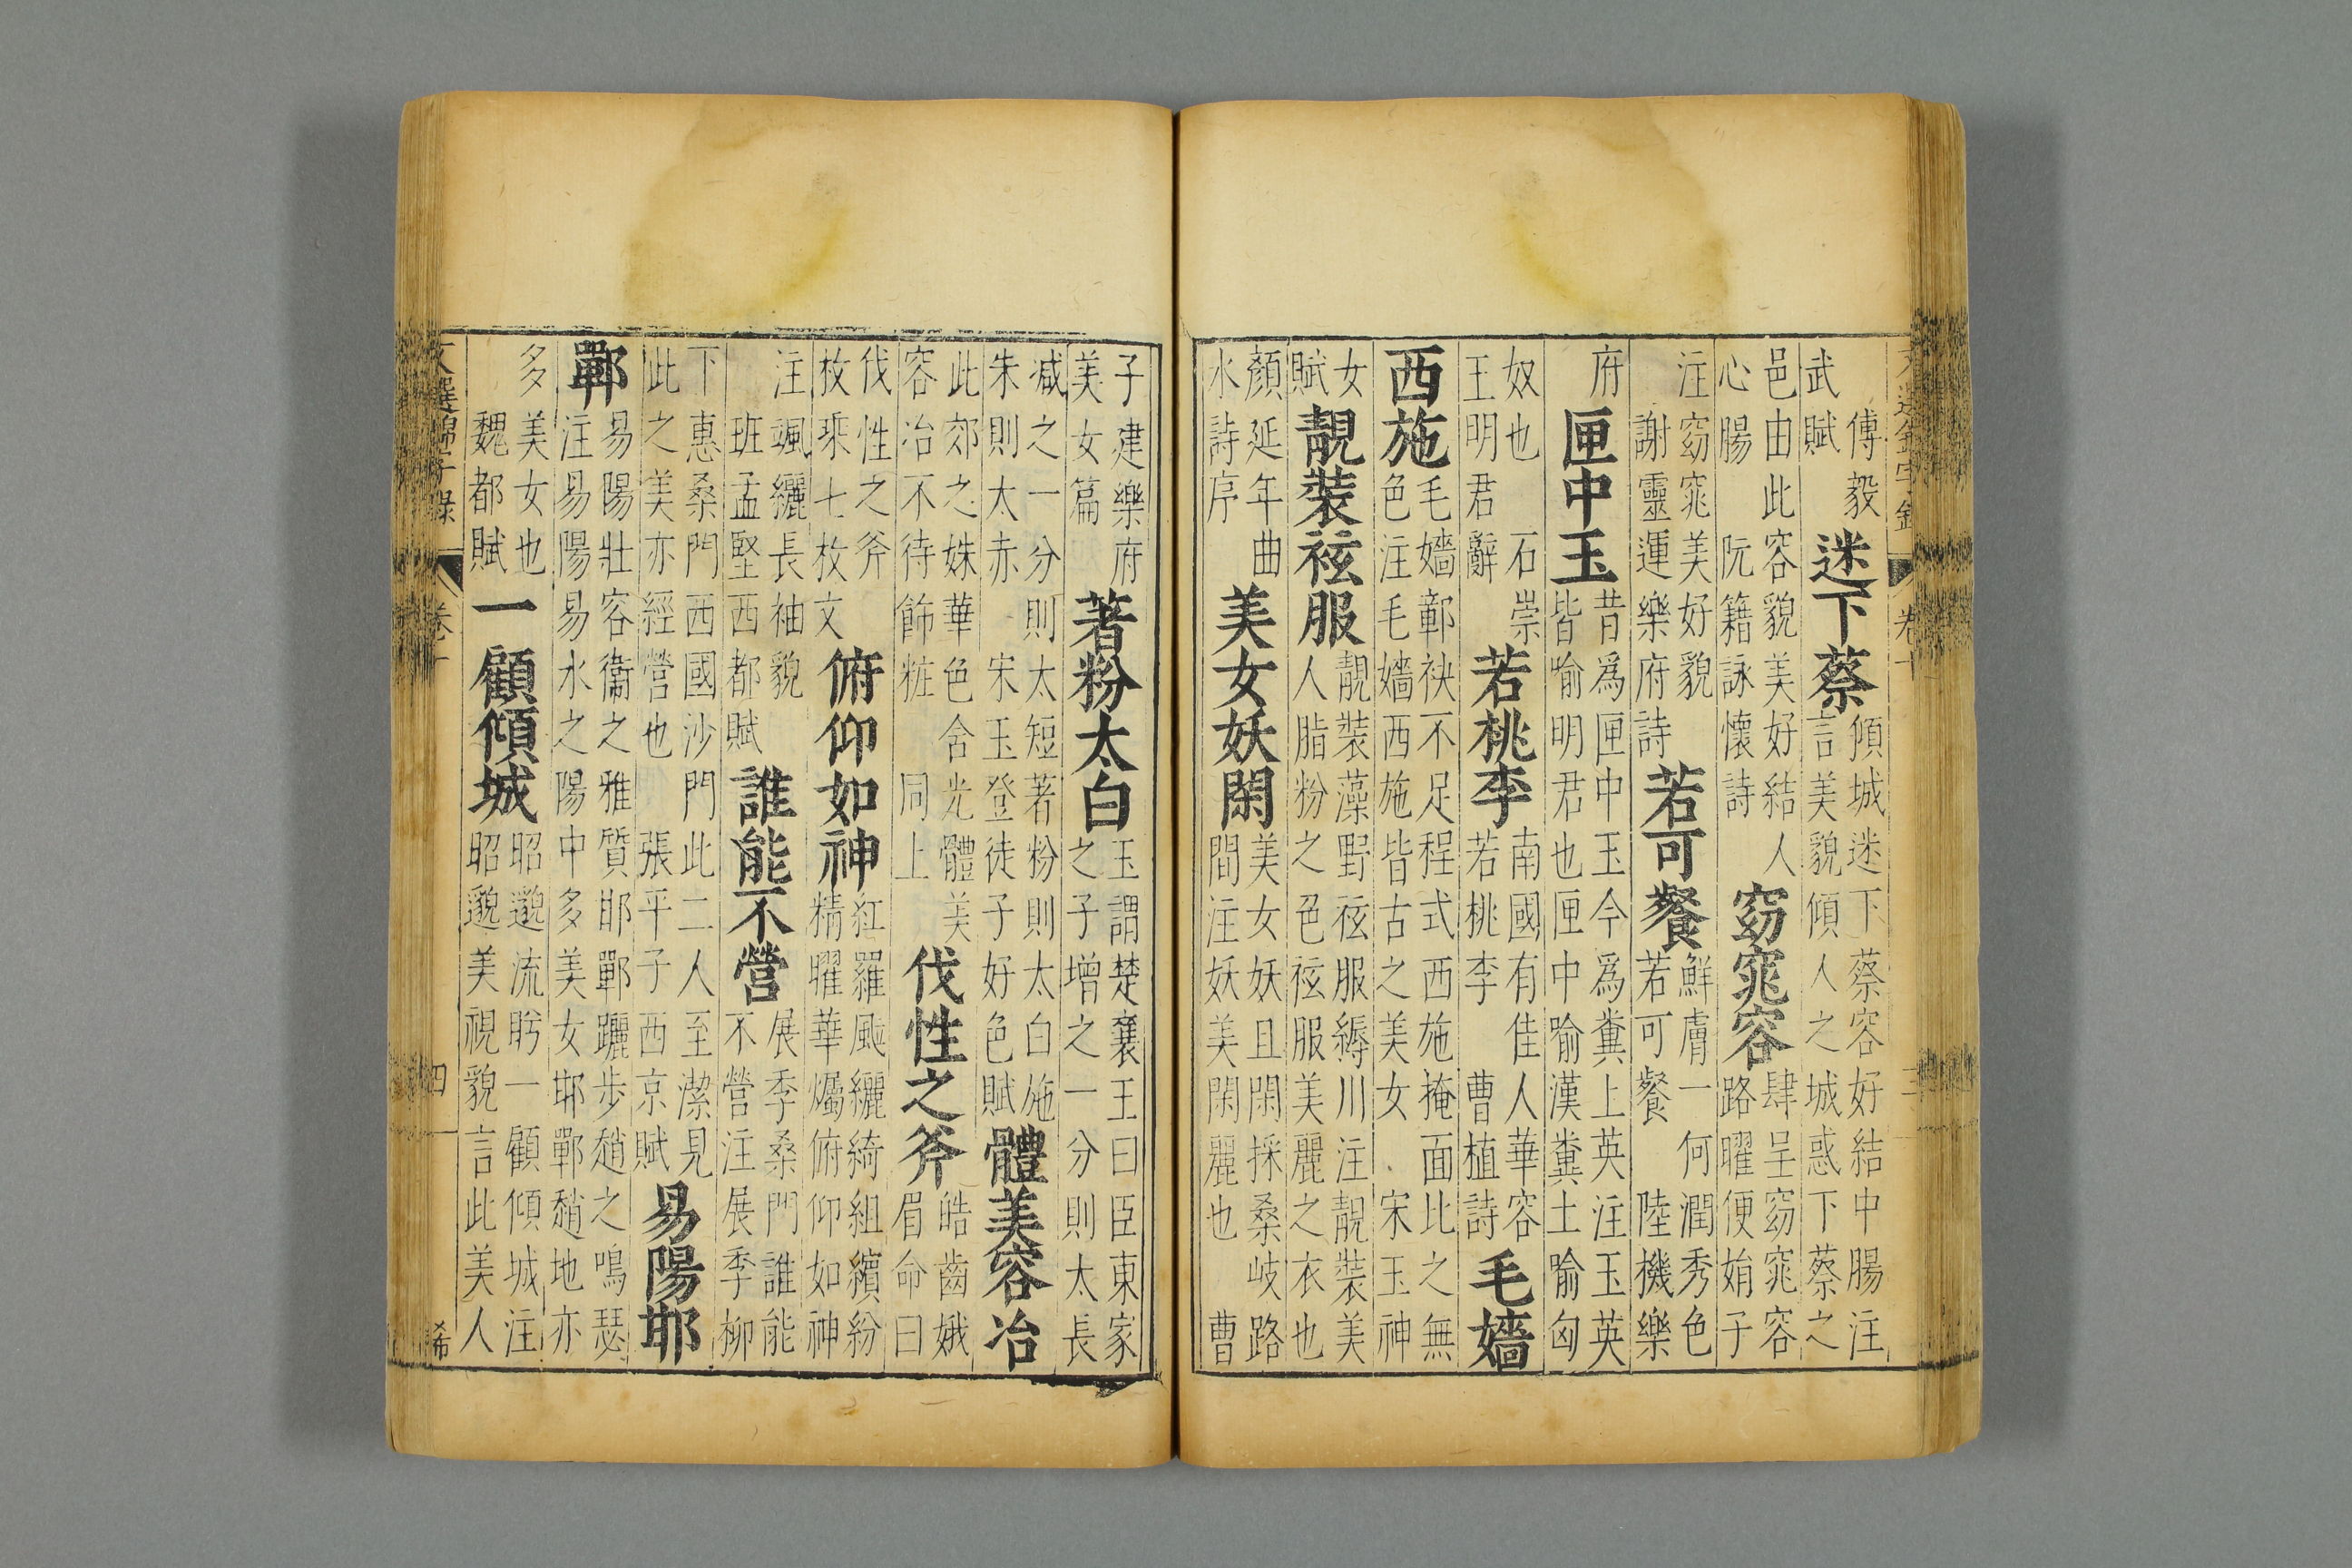 文選錦字錄
卷十
三
傅毅
武賦
迷下蔡
傾城迷下蔡容好結中腸注
言美貌傾人之城惑下蔡之
邑由此容貌美好結人
心腸 阮籍詠懷詩
窈窕容
肆呈窈窕容
路曜便娟子
注窈窕美好貌
謝靈運樂府詩
若可餐
鮮膚一何潤秀色
若可餐 陸機樂
府
匣中玉
昔爲匣中玉今爲糞上英注玉英
皆喻明君也匣中喻漢糞土喻匈
奴也 石崇
王明君辭
若桃李
南國有佳人華容
若桃李 曹植詩
毛嬙
西施
毛嬙鄣袂不足程式西施掩面比之無
色注毛嬙西施皆古之美女 宋玉神
女
賦
靚裝袨服
靚裝藻野袨服縟川注靚裝美
人脂粉之色袨服美麗之衣也
顏延年曲
水詩序
美女妖閑
美女妖且閑採桑岐路
間注妖美閑麗也 曹
子建樂府
美女篇
著粉太白
玉謂楚襄王曰臣東家
之子增之一分則太長
減之一分則太短著粉則太白施
朱則太赤 宋玉登徒子好色賦
體美容冶
此郊之姝華色含光體美
容冶不待飾粧 同上
伐性之斧
皓齒娥
眉命曰
伐性之斧
枚乘七枚文
俯仰如神
紅羅颯纚綺組繽紛
精曜華爥俯仰如神
注颯纚長袖貌
班孟堅西都賦
誰能不營
展季桑門誰能
不營注展季柳
下惠桑門西國沙門此二人至潔見
此之美亦經營也 張平子西京賦
易陽邯
鄲
易陽壯容衞之雅質邯鄲躧步趙之鳴瑟
注易陽易水之陽中多美女邯鄲趙地亦
多美女也
魏都賦
一顧傾城
昭邈流眄一顧傾城注
昭邈美視貌言此美人
文選錦字錄
卷十
四
希